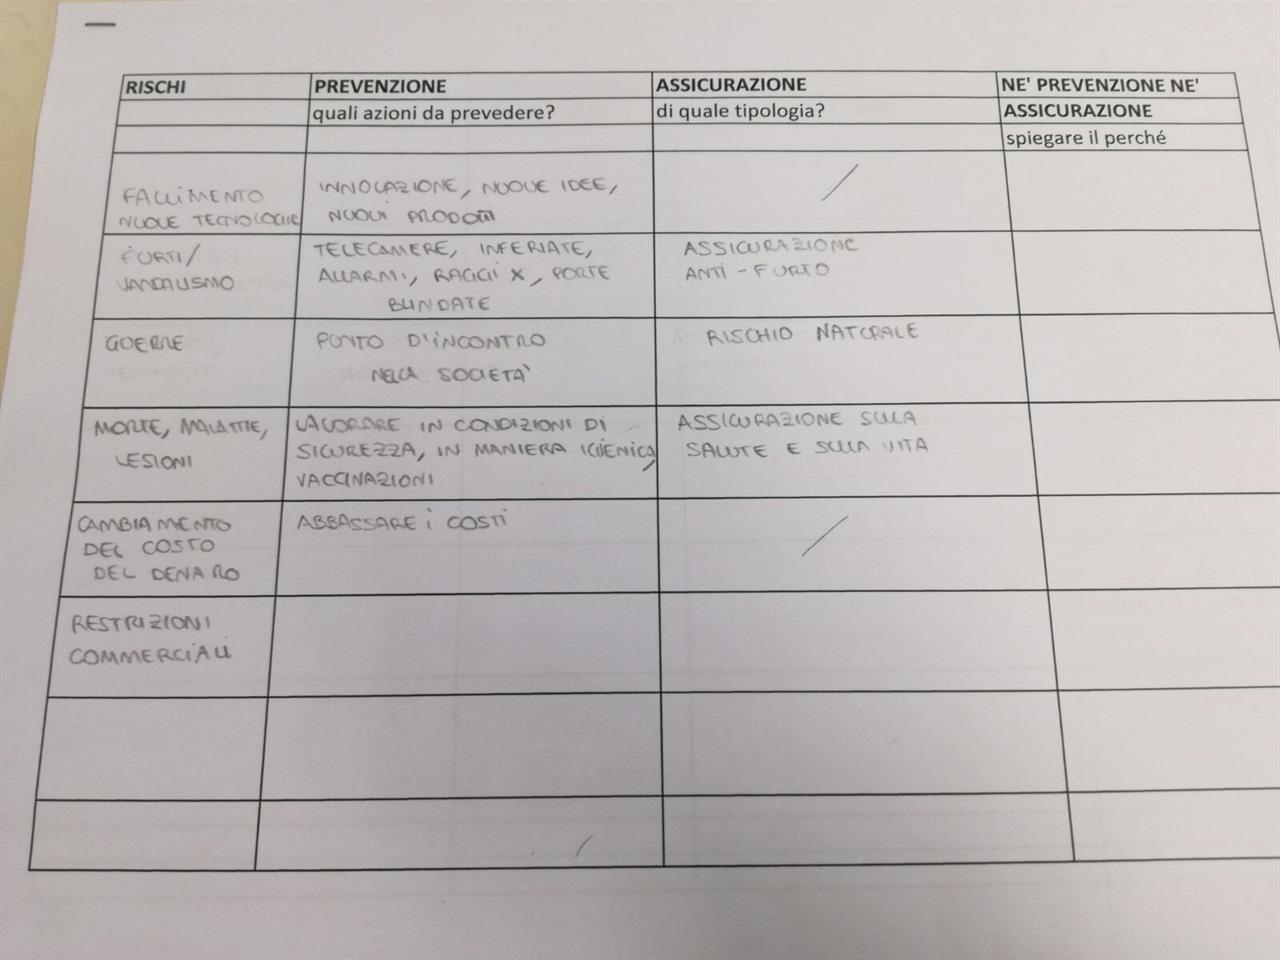 RISCHI
PREVENZIONE
ASSICURAZIONE
NE' PREVENZIONE NE'
quali azioni da prevedere?
di quale tipologia?
ASSICURAZIONE
spiegare il perché
FALLIMENTO
NUOVE TECNOLOGIE
INNOVAZIONE, NUOVE IDEE,
NUOVI PRODOTTI
FURTI/
VANDALISMO
TELECAMERE, INFERIATE,
ALLARMI, RAGGI X, PORTE
BLINDATE
ASSICURAZIONE
ANTI-FURTO
GUERRE
PUNTO D'INCONTRO
NELLA SOCIETÀ
RISCHIO NATURALE
MORTE, MALATTIE,
LESIONI
LAVORARE IN CONDIZIONI DI
SICUREZZA, IN MANIERA IGIENICA,
VACCINAZIONI
ASSICURAZIONE SULLA
SALUTE E SULLA VITA
CAMBIAMENTO
DEL COSTO
DEL DENARO
ABBASSARE I COSTI
RESTRIZIONI
COMMERCIALI